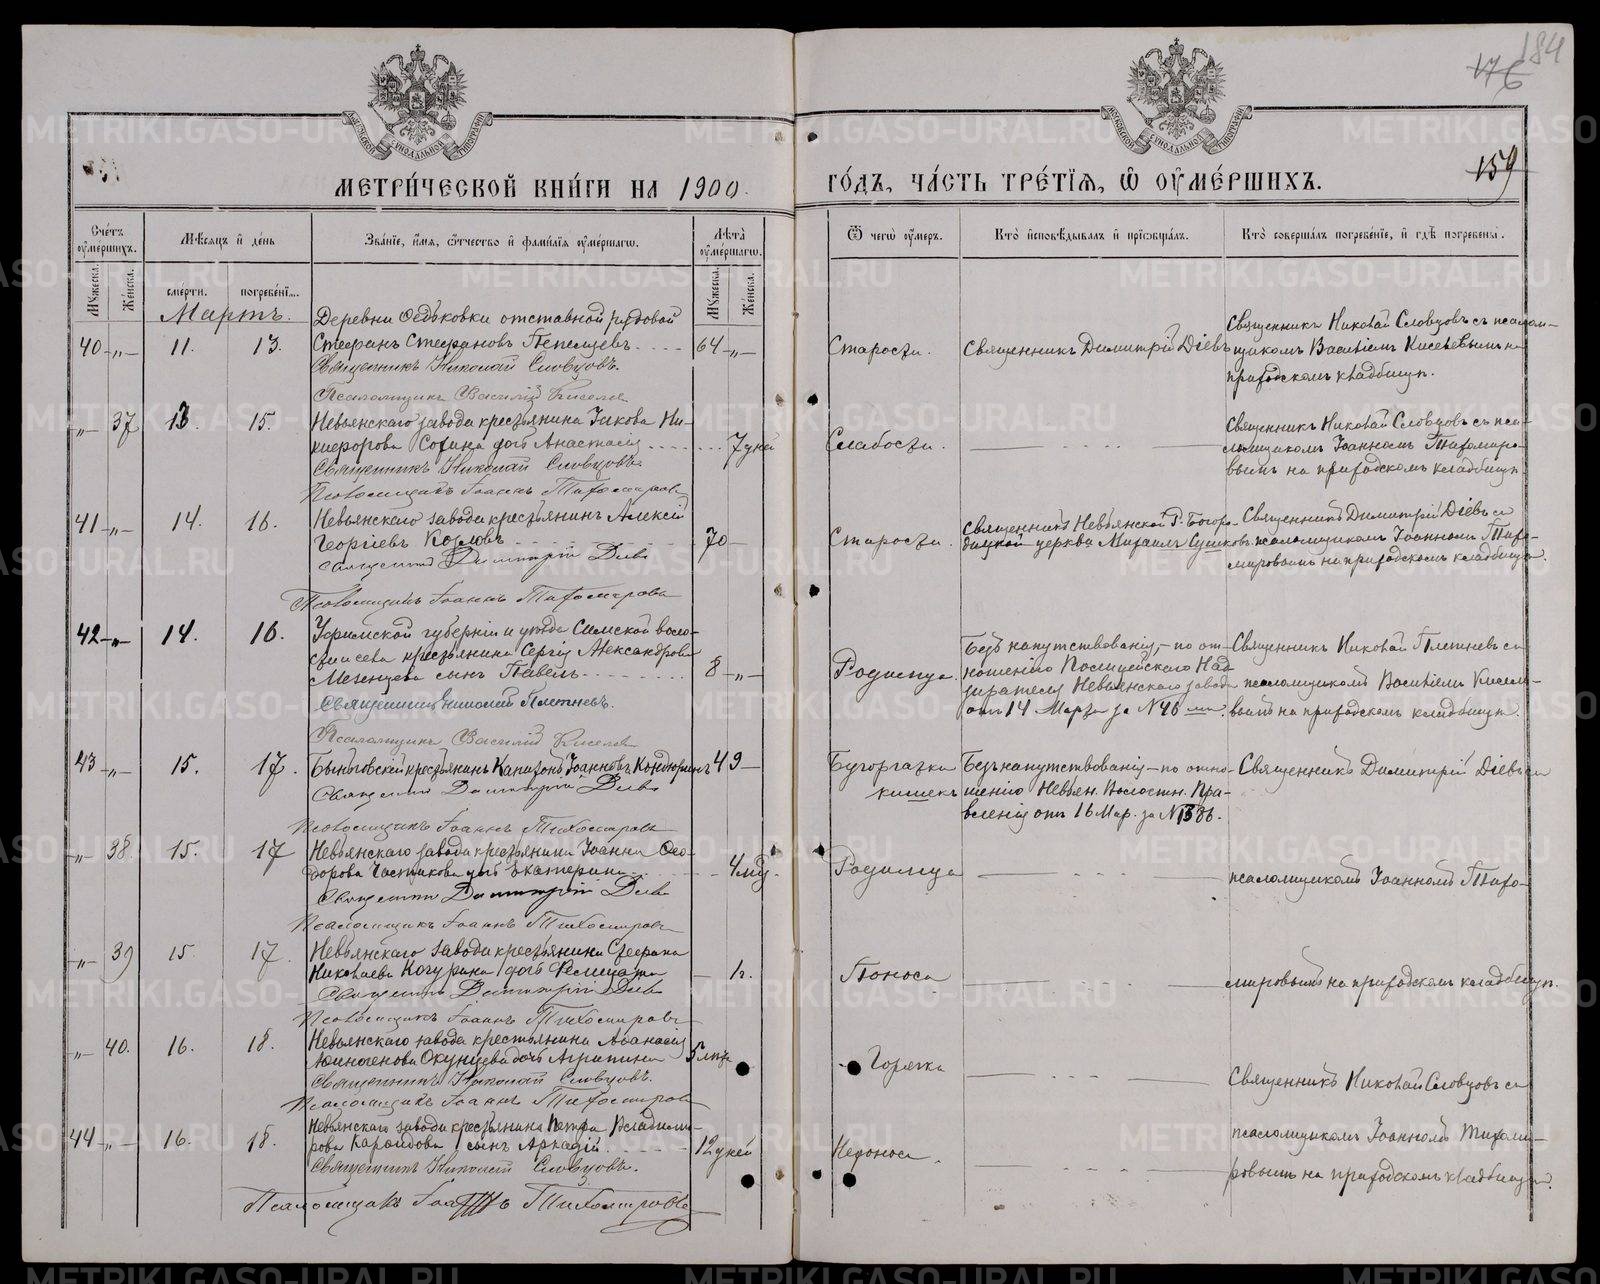 184
176
159
МЕТРИ́ЧЕСКОЙ КНИ́ГИ НА 1900.
ГО́ДЪ, ЧА́СТЬ ТРЕ́ТІѦ, Ѿ ОУ҆МЕ́РШИХЪ.
Сче́тъ оу҆ме́ршихъ.
Мꙋ́жеска.
Же́нска.
Мѣ́сяцъ и҆ де́нь
сме́рти.
погребе́нїѧ.
Зва́нїе, и҆́мѧ, ѻ҆́тчество и҆ фами́лїѧ оу҆ме́ршагѡ.
Лѣ́та оу҆ме́ршагѡ.
Мꙋ́жеска.
Же́нска.
Ѿ чегѡ̀ оу҆́меръ.
Кто̀ и҆сповѣ́дывалъ и҆ прїѡбща́лъ.
Кто̀ соверша́лъ погребе́нїе, и҆ гдѣ̀ погребены̀.
Мартъ.
Деревни Ѳедьковки отставной рядовой
40 -„- 11. 13. Стефанъ Стефановъ Пепелцевъ 64 -„-
Священникъ Николай Словцовъ.
Псаломщикъ Василій Киселев
Старости. Священникъ Димитрій Діевъ
Священникъ Николай Словцовъ съ псалом-
щикомъ Василіемъ Киселевымъ на
приходскомъ кладбищѣ.
-„- 37 13. 15. Невьянскаго завода крестьянина Іакова Ни-
кифорова Софина дочь Анастасія 7 дней
Священникъ Николай Словцовъ
Псаломщикъ Іоаннъ Тихомировъ
Слабости.
Священникъ Николай Словцовъ съ пса-
ломщикомъ Іоанномъ Тихомиро-
вымъ на приходскомъ кладбищѣ
41 -„- 14. 16. Невьянскаго завода крестьянинъ Алексій
Георгіевъ Козловъ 70 -
Священникъ Димитрій Діевъ
Псаломщикъ Іоаннъ Тихомировъ
Старости. Священникъ Невьянской Р. Богоро-
дицкой церкви Михаилъ Сушковъ.
Священникъ Димитрій Діевъ съ
псаломщикомъ Іоанномъ Тихо-
мировымъ на приходскомъ кладбищѣ.
42 -„- 14. 16. Уфимской губерніи и уѣзда Симской воло-
сти и села крестьянина Сергія Александрова
Мезенцева сынъ Павелъ 8 -„-
Священникъ Николай Плотневъ.
Псаломщикъ Василій Киселев
Родимца. Безъ напутствованія, - по от-
ношенію Полицейскаго Над-
зирателя Невьянскаго завода
отъ 14 Марта за № 46
Священникъ Николай Плотневъ съ
псаломщикомъ Василіемъ Киселе-
вымъ на приходскомъ кладбищѣ.
43 -„- 15. 17. Быньговскій крестьянинъ Капитонъ Іоанновъ Кондюринъ 49 -
Священникъ Димитрій Діевъ
Псаломщикъ Іоаннъ Тихомировъ
Бугорчатка кишекъ
Безъ напутствованія - по отно-
шенію Невьян. Волостн. Пра-
вленія отъ 16 Мар. за № 1386.
Священникъ Димитрій Діевъ съ
-„- 38. 15. 17 Невьянскаго завода крестьянина Іоанна Ѳео-
дорова Частикова дочь Екатерина 4 мѣс.
Священникъ Димитрій Діевъ
Псаломщикъ Іоаннъ Тихомировъ
Родимца
псаломщикомъ Іоанномъ Тихо-
-„- 39 15 17. Невьянскаго завода крестьянина Стефана
Николаева Кочурина дочь Фелицата 1 г.
Священникъ Димитрій Діевъ
Псаломщикъ Іоаннъ Тихомировъ
Поноса
мировымъ на приходскомъ кладбищѣ.
-„- 40. 16. 18. Невьянскаго завода крестьянина Аѳанасія
Окунцева дочь Агрипина 5 лѣтъ
Священникъ Николай Словцовъ.
Псаломщикъ Іоаннъ Тихомировъ
Горячка
Священникъ Николай Словцовъ съ
44 -„- 16. 18. Невьянскаго завода крестьянина Петра Владими-
рова сынъ Аркадій 12 дней
Священникъ Николай Словцовъ.
Псаломщикъ Іоаннъ Тихомировъ
псаломщикомъ Іоанномъ Тихоми-
ровымъ на приходскомъ кладбищѣ.
METRIKI.GASO-URAL.RU